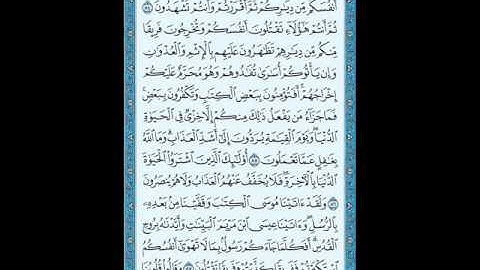 أَنفُسَكُم مِّن دِيَٰرِكُمْ ثُمَّ أَقْرَرْتُمْ وَأَنتُمْ تَشْهَدُونَ ٨٤
ثُمَّ أَنتُمْ هَٰٓؤُلَآءِ تَقْتُلُونَ أَنفُسَكُمْ وَتُخْرِجُونَ فَرِيقًا
مِّنكُم مِّن دِيَٰرِهِمْ تَظَٰهَرُونَ عَلَيْهِم بِٱلْإِثْمِ وَٱلْعُدْوَٰنِ
وَإِن يَأْتُوكُمْ أُسَٰرَىٰ تُفَٰدُوهُمْ وَهُوَ مُحَرَّمٌ عَلَيْكُمْ
إِخْرَاجُهُمْ ۚ أَفَتُؤْمِنُونَ بِبَعْضِ ٱلْكِتَٰبِ وَتَكْفُرُونَ بِبَعْضٍ ۚ
فَمَا جَزَآءُ مَن يَفْعَلُ ذَٰلِكَ مِنكُمْ إِلَّا خِزْىٌ فِى ٱلْحَيَوٰةِ
ٱلدُّنْيَا ۖ وَيَوْمَ ٱلْقِيَٰمَةِ يُرَدُّونَ إِلَىٰٓ أَشَدِّ ٱلْعَذَابِ ۗ وَمَا ٱللَّهُ
بِغَٰفِلٍ عَمَّا تَعْمَلُونَ ٨٥ أُو۟لَٰٓئِكَ ٱلَّذِينَ ٱشْتَرَوُا۟ ٱلْحَيَوٰةَ
ٱلدُّنْيَا بِٱلْـَٔاخِرَةِ ۖ فَلَا يُخَفَّفُ عَنْهُمُ ٱلْعَذَابُ وَلَا هُمْ يُنصَرُونَ
٨٦ وَلَقَدْ ءَاتَيْنَا مُوسَى ٱلْكِتَٰبَ وَقَفَّيْنَا مِنۢ بَعْدِهِۦ
بِٱلرُّسُلِ ۖ وَءَاتَيْنَا عِيسَى ٱبْنَ مَرْيَمَ ٱلْبَيِّنَٰتِ وَأَيَّدْنَٰهُ بِرُوحِ
ٱلْقُدُسِ ۗ أَفَكُلَّمَا جَآءَكُمْ رَسُولٌۢ بِمَا لَا تَهْوَىٰٓ أَنفُسُكُمُ
ٱسْتَكْبَرْتُمْ فَفَرِيقًا كَذَّبْتُمْ وَفَرِيقًا تَقْتُلُونَ ٨٧ وَقَالُوا۟ قُلُوبُنَا